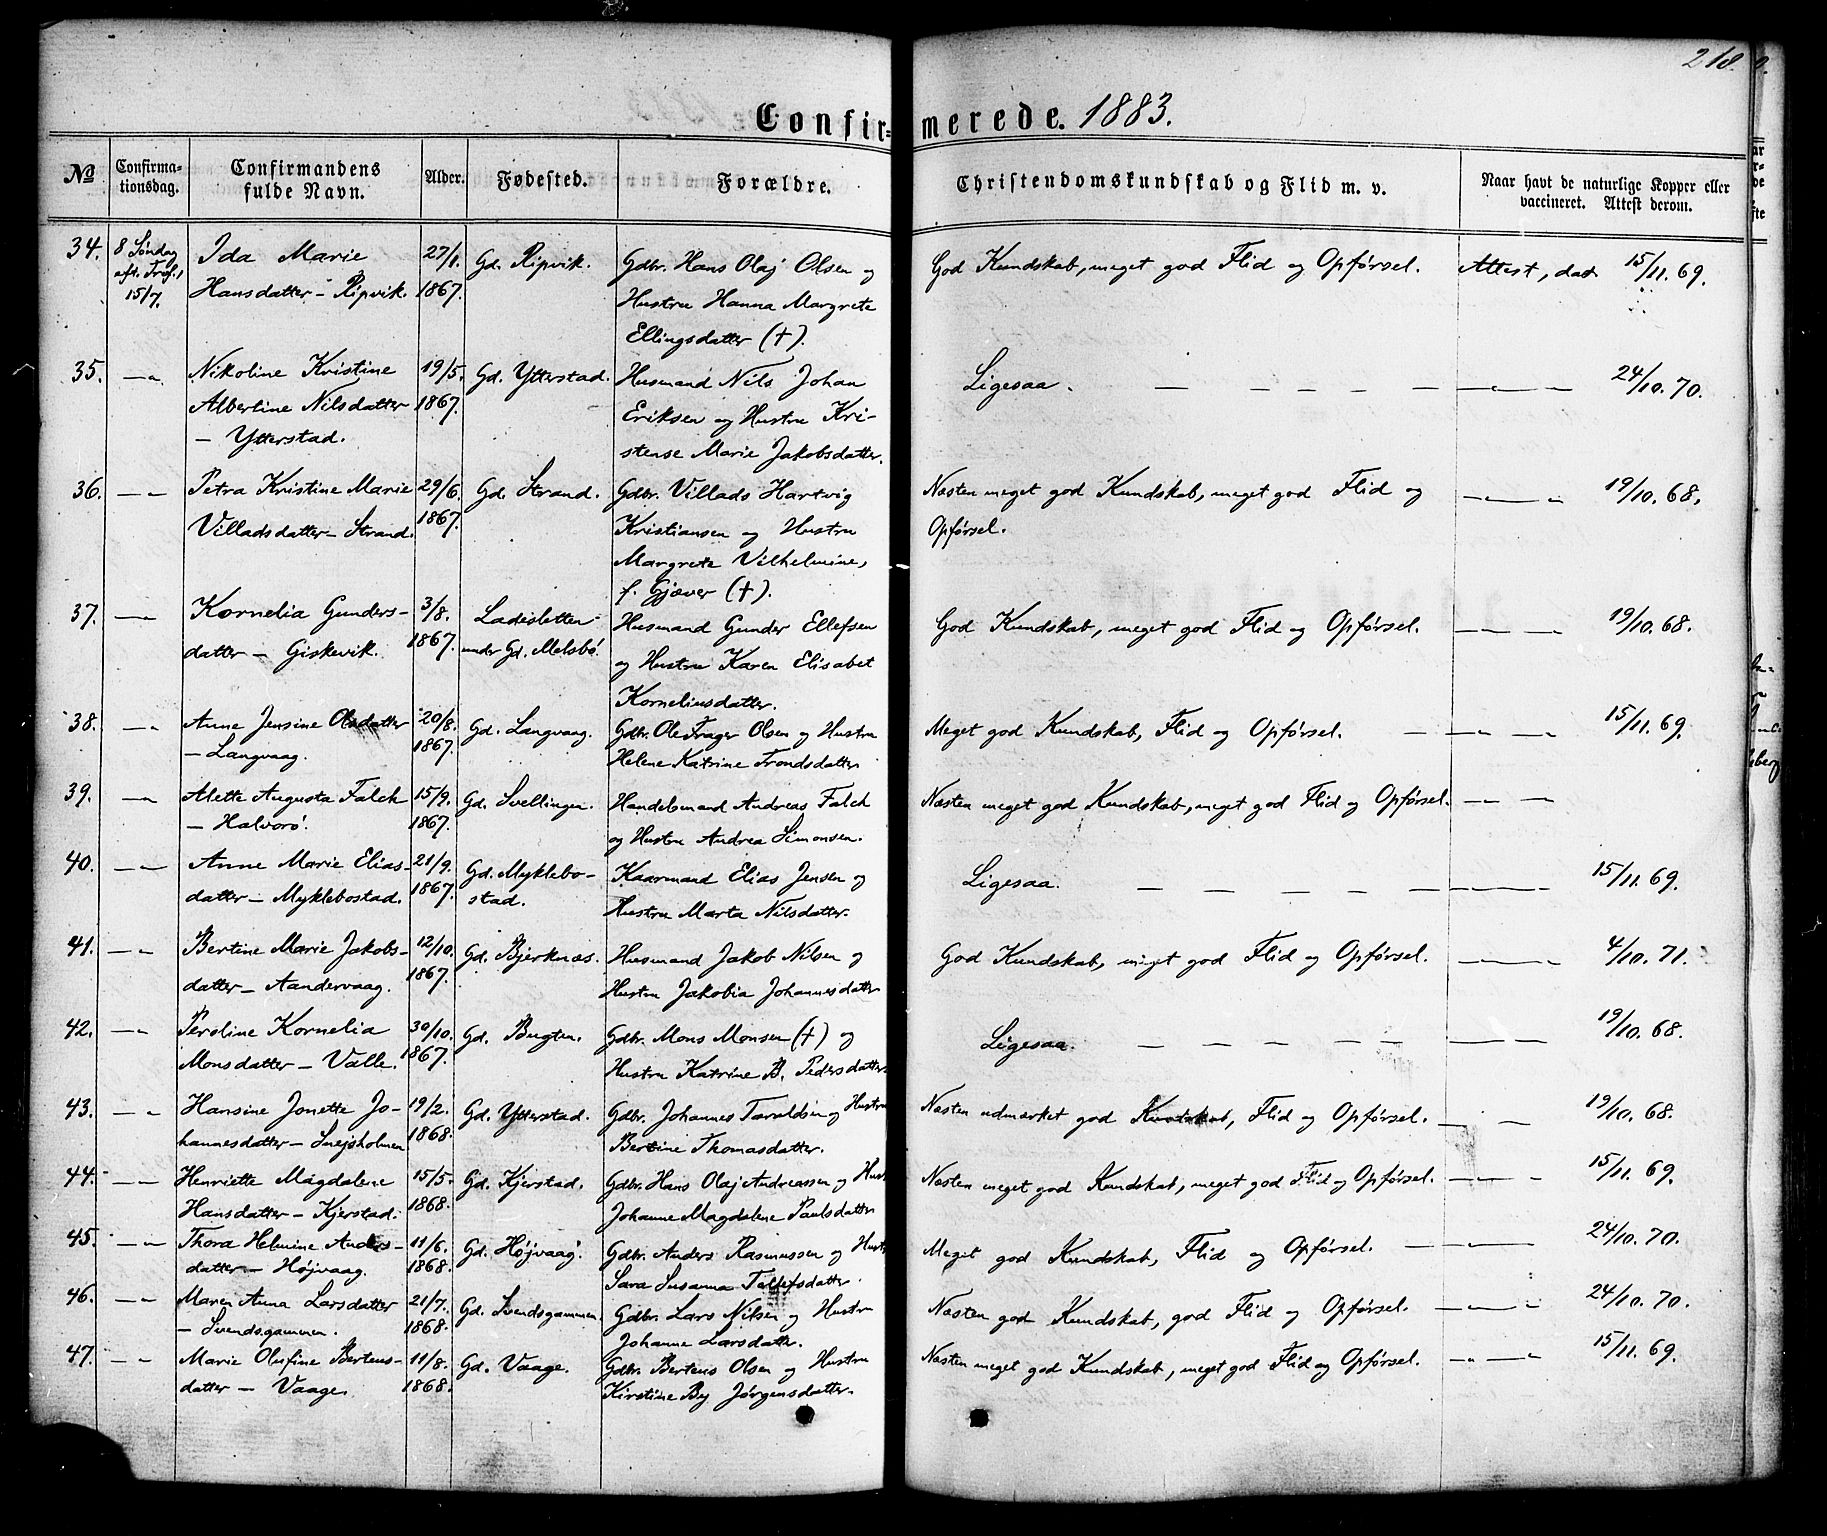 218.
Confirmerede. 1883.
No
Confirma-
tionsdag.
Confirmandens
fulde Navn.
Alder.
Fødested.
Forældre.
Christendomskundskab og Flid m. v.
Naar havt de naturlige Kopper eller
vaccineret. Attest derom.
34. 8 Søndag Ida Marie 27/1. Gd. Ripvik. Gdbr. Hans Olaj Olsen og God Kundskab, meget god Flid og Opførsel. Attest, dat 15/11. 69.
eft. Tref. Hansdatter – Ripvik. 1867. Hustru Hanna Margrete
15/7. Ellingsdatter (†).
35. — „ Nikoline Kristine 19/5. Gd. Ytterstad. Husmand Nils Johan Ligesaa. — — — — — „ — 24/10. 70.
Albertine Nilsdatter 1867. Eriksen og Hustru Kri-
– Ytterstad. stense Marie Jakobsdatter.
36. — „ Petra Kristine Marie 29/6. Gd. Strand. Gdbr. Villads Hartvig Næsten meget god Kundskab, meget god Flid og — „ — „ 19/10. 68.
Villadsdatter – Strand. 1867. Kristiansen og Hustru Opførsel.
Margrete Vilhelmine,
f. Gjæver (†).
37. — „ Kornelia Gunders- 3/8. Ladesletten Husmand Gunder Ellefsen God Kundskab, meget god Flid og Opførsel. — „ — 19/10. 68.
datter – Giskevik. 1867. under Gd. Melsbø. og Hustru Karen Elisabet
Korneliusdatter.
38. — „ Anne Jensine Olsdatter 20/8. Gd. Langvaag. Gdbr. Ole Frager Olsen og Hustru Meget god Kundskab, Flid og Opførsel. — — „ — „ 15/11. 69.
– Langvaag. 1867. Helene Katrine Trondsdatter
39. — „ Alette Augusta Falch 15/9. Gd. Svellingen. Handelsmand Andreas Falch Næsten meget god Kundskab, meget god Flid og Opførsel. — „ —
– Halvorø. 1867. og Hustru Andrea Simonsen.
40. — „ Anne Marie Elias- 21/9. Gd. Myklebo- Kaarmand Elias Jensen og Ligesaa. — — — — — „ — 15/11. 69.
datter – Myklebostad. 1867. stad. Hustru Marta Nilsdatter.
41. — „ Bertine Marie Jakobs- 12/10. Gd. Bjerknæs. Husmand Jakob Nilsen og God Kundskab, meget god Flid og Opførsel. — „ — „ 4/10. 71.
datter – Aandervaag. 1867. Hustru Jakobia Johannesdatter
42. — „ Peroline Kornelia 30/10. Gd. Bugten. Gdbr. Mons Monsen (†) og Ligesaa. — — — — — — — 19/10. 68.
Monsdatter – Valle. 1867. Hustru Katrine B. Pedersdatter
43. — „ Hansine Jonette Jo- 19/2. Gd. Ytterstad. Gdbr. Johannes Taraldsen og Hustru Næsten udmærket god Kundskab, Flid og Opførsel. — — 19/10. 68.
hannesdatter – Snejsholmen 1868. Bertine Thomasdatter.
44. — „ Henriette Magdalene 15/5. Gd. Kjerstad. Gdbr. Hans Olaj Andreassen og Hust. Næsten meget god Kundskab, meget god Flid og Opførsel. — „ — 15/11. 69.
Hansdatter – Kjerstad. 1868. Johanne Magdalene Paulsdatter
45. — „ Thora Helmine Anders- 11/6. Gd. Højvaag. Gdbr. Anders Rasmussen og Hust. Meget god Kundskab, Flid og Opførsel. — — „ — 24/10. 70.
datter – Højvaag. 1868. Sara Susanna Tollefsdatter.
46. — „ Maren Anna Larsdatter 21/7. Gd. Svendsgammen. Gdbr. Lars Nilsen og Hustru Næsten god Kundskab, god Flid og Opførsel. — „ — „ 24/10. 70.
– Svendsgammen. 1868. Johanne Larsdatter.
47. — „ Marie Olufine Berteus- 11/8. Gd. Vaage. Gdbr. Berteus Olsen og Hustru Næsten meget god Kundskab, meget god Flid og Opførsel. — „ — „ 15/11. 69.
datter – Vaage. 1868. Kirstine By Jørgensdatter.